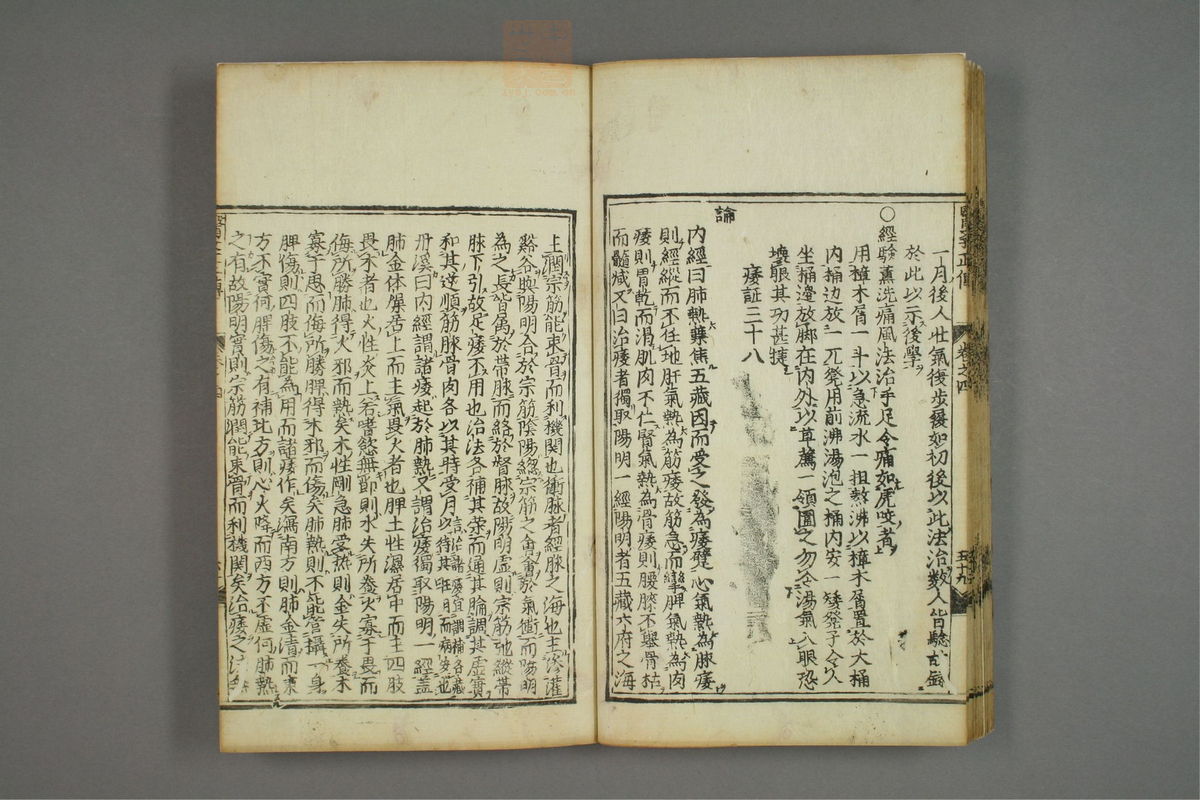 一月後人壯氣復步緩如初後以此法治數人皆驗
於此以示後學
○經驗薰洗痛風法治手足令痛如虎咬者
用樟木屑一斗以急流水一担熬沸以樟木屑置於大桶
內桶边放一兀凳用前沸湯泡之桶內安一矮凳子令人
坐桶邊放脚在內外以草薦一領圍之勿令湯氣入眼恐
壞眼其功甚捷
痿証三十八
論
內經曰肺熱葉焦五藏因而受之發為痿躄心氣熱為脉痿
則經縱而不任地肝氣熱為筋痿故筋急而攣脾氣熱為肉
痿則胃乾而渴肌肉不仁腎氣熱為骨痿則腰膝不舉骨枯
而髓減又曰治痿者獨取陽明一經陽明者五藏六府之海
主潤宗筋能束骨而利機関也衝脉者經脉之海也主滲灌
谿谷與陽明合於宗筋陰陽總宗筋之會會於氣街而陽明
為之長皆屬於帶脉而絡於督脉故陽明虛則宗筋弛縱帶
脉下引故足痿不用也治法各補其滎而通其腧調其虛實
和其逆順筋脉骨肉各以其時受月以言治諸痿宜調補各藏待其旺月而病安也
丹溪曰內經謂諸痿起於肺熱又謂治痿獨取陽明一經蓋
肺金体燥居上而主氣畏火者也脾土性濕居中而主四肢
畏木者也火性炎上若嗜慾無節則水失所養火寡于畏而
侮所勝肺得火邪而熱矣木性剛急肺受熱則金失所養木
寡于畏而侮所勝脾得木邪而傷矣肺熱則不能管攝一身
脾傷則四肢不能為用而諸痿作矣瀉南方則肺金清而東
方不實何脾傷之有補北方則心火降而西方不虛何肺熱
之有故陽明實則宗筋潤能束骨而利機関矣治痿之法